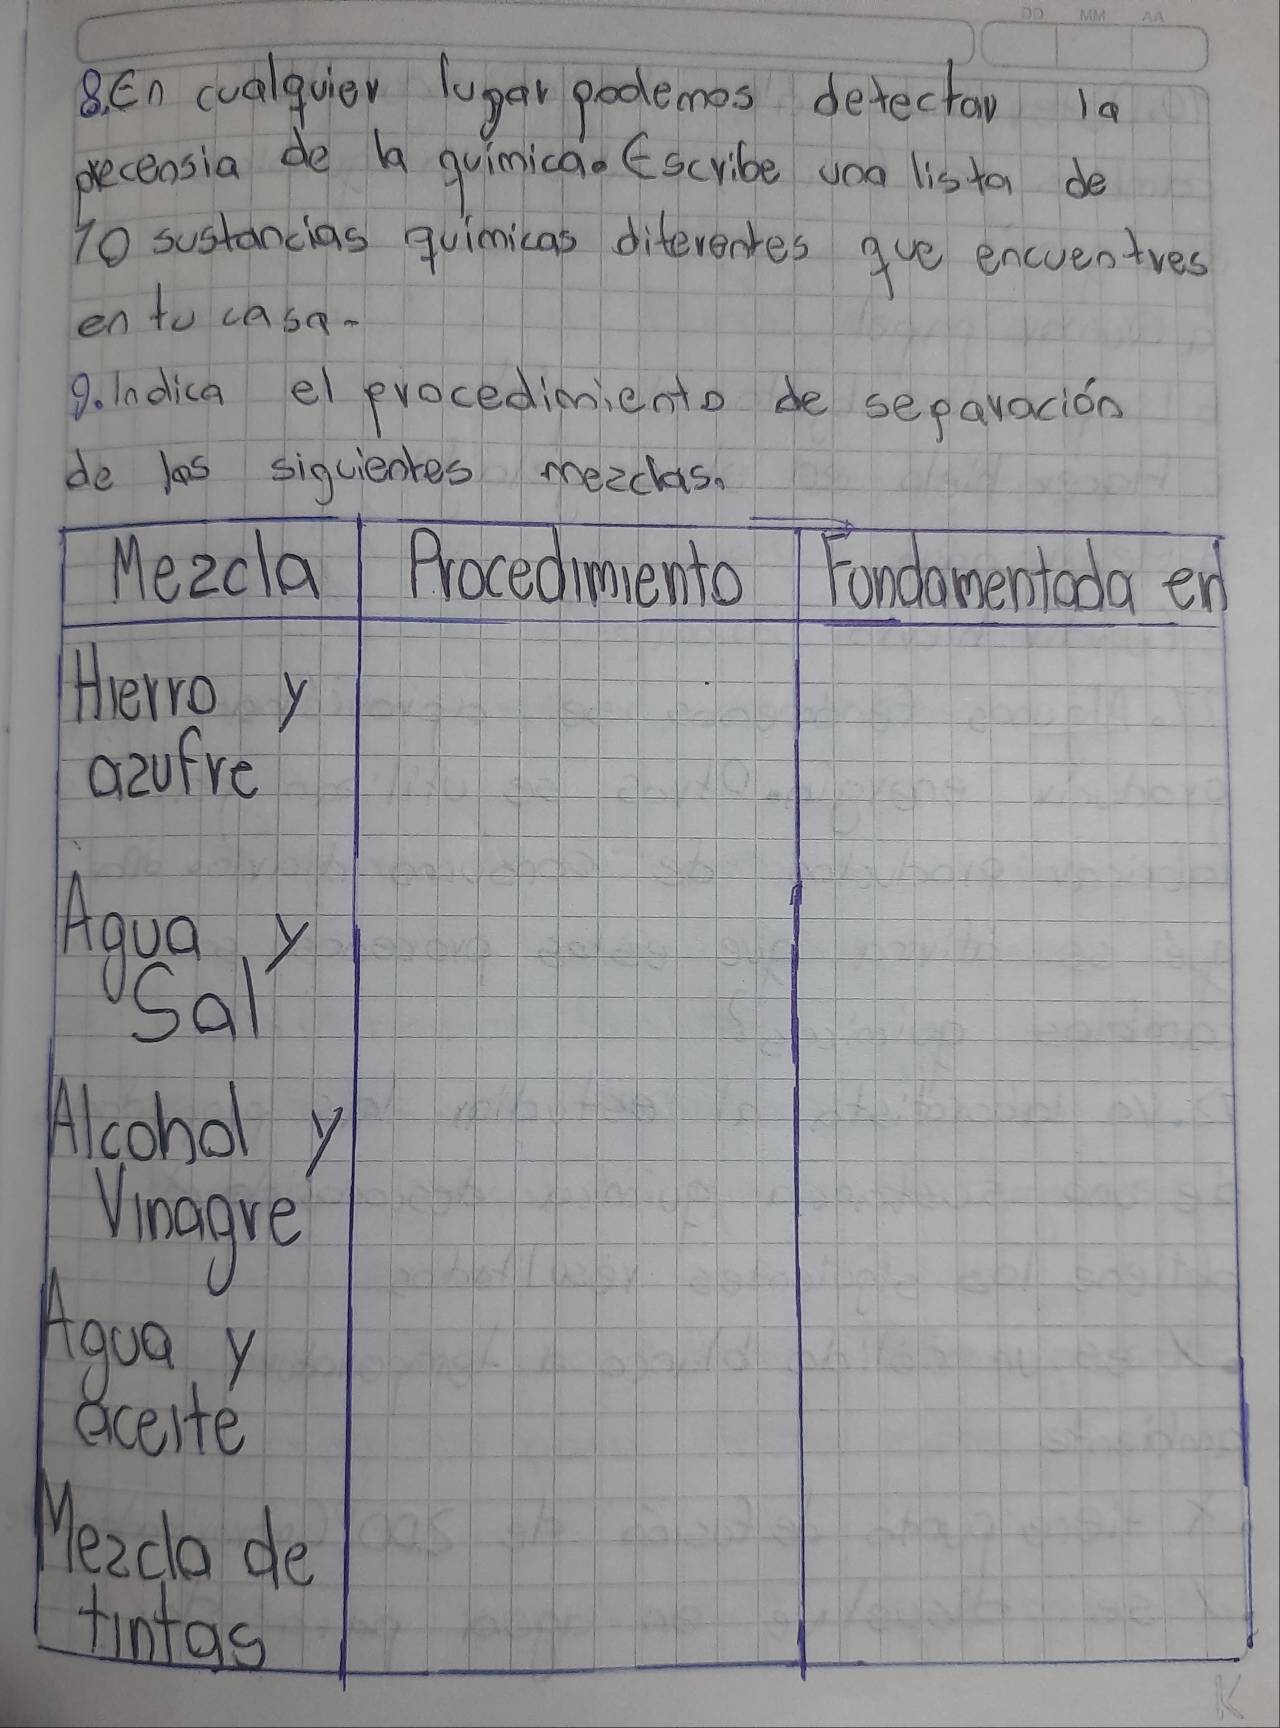 DD MM AA
8. En cualquier lugar podemos detectar la
precensia de la química. Escribe una lista de
10 sustancias químicas diferentes que encuentres
en tu casa.
9. Indica el procedimiento de separación
de las siguientes mezclas.
Mezcla Procedimiento Fundamentada en
Hierro y
azufre
Agua y
Sal
Alcohol y
Vinagre
Agua y
aceite
Mezcla de
tintas
K